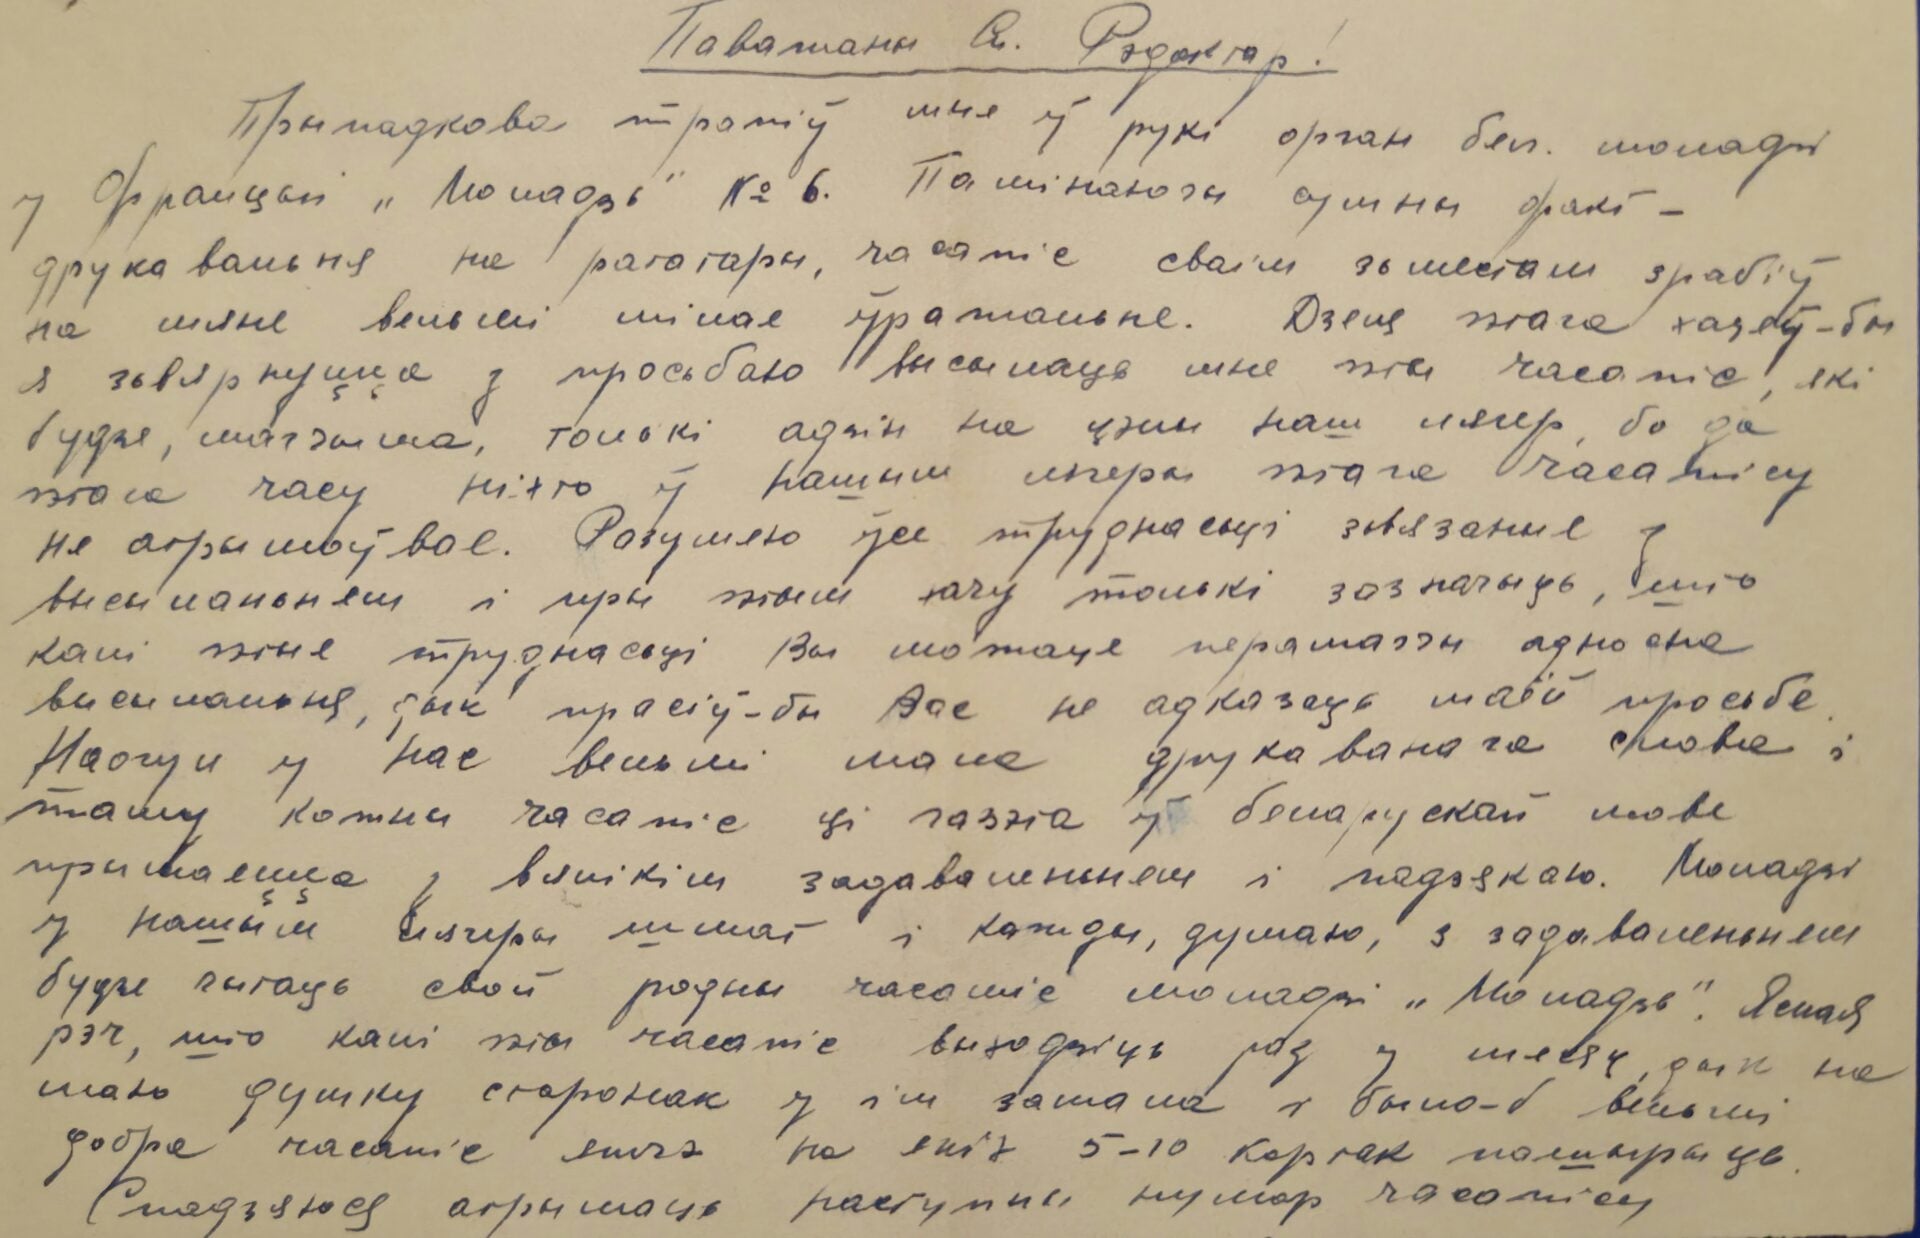 Паважаны Сп. Рэдактар!
Прыпадкова трапіў мне ў рукі орган бел. моладзі
у Францыі „Моладзь" № 6. Памінаючы сумны факт –
друкаваньня на рататары, часапіс сваім зьместам зрабіў
на мяне вельмі мілае ўражаньне. Дзеля этага хацеў-бы
я зьвярнуцца з просьбаю высылаць мне эты часапіс, які
будзе, магчыма, толькі адзін на цэлы наш лягер, бо да
этага часу ніхто ў нашым лягеры этага часапісу
не атрымоўвае. Разумею ўсе труднасьці звязаные з
высыланьнем і пры этым хачу толькі зазначыць, што
калі этые труднасьці Вы можаце перамагчы адносна
высыланьня, дык прасіў-бы Вас не адказаць маёй просьбе.
Наогул у нас вельмі мала друкаванага слова і
таму кожны часапіс ці газэта ў беларускай мове
прымаецца з вялікім задаваленьнем і падзякаю. Моладзі
у нашым лягеры шмат і кажды, думаю, з задаваленьнем
будзе чытаць свой родны часапіс моладзі „Моладзь". Ясная
рэч, што калі эты часапіс выходзіць раз у месяц, дык на
маю думку старонак у ім замала і было-б вельмі
добра часапіс яшчэ на якіх 5–10 картак пашырыць.
Спадзяюся атрымаць наступны нумар часапісу